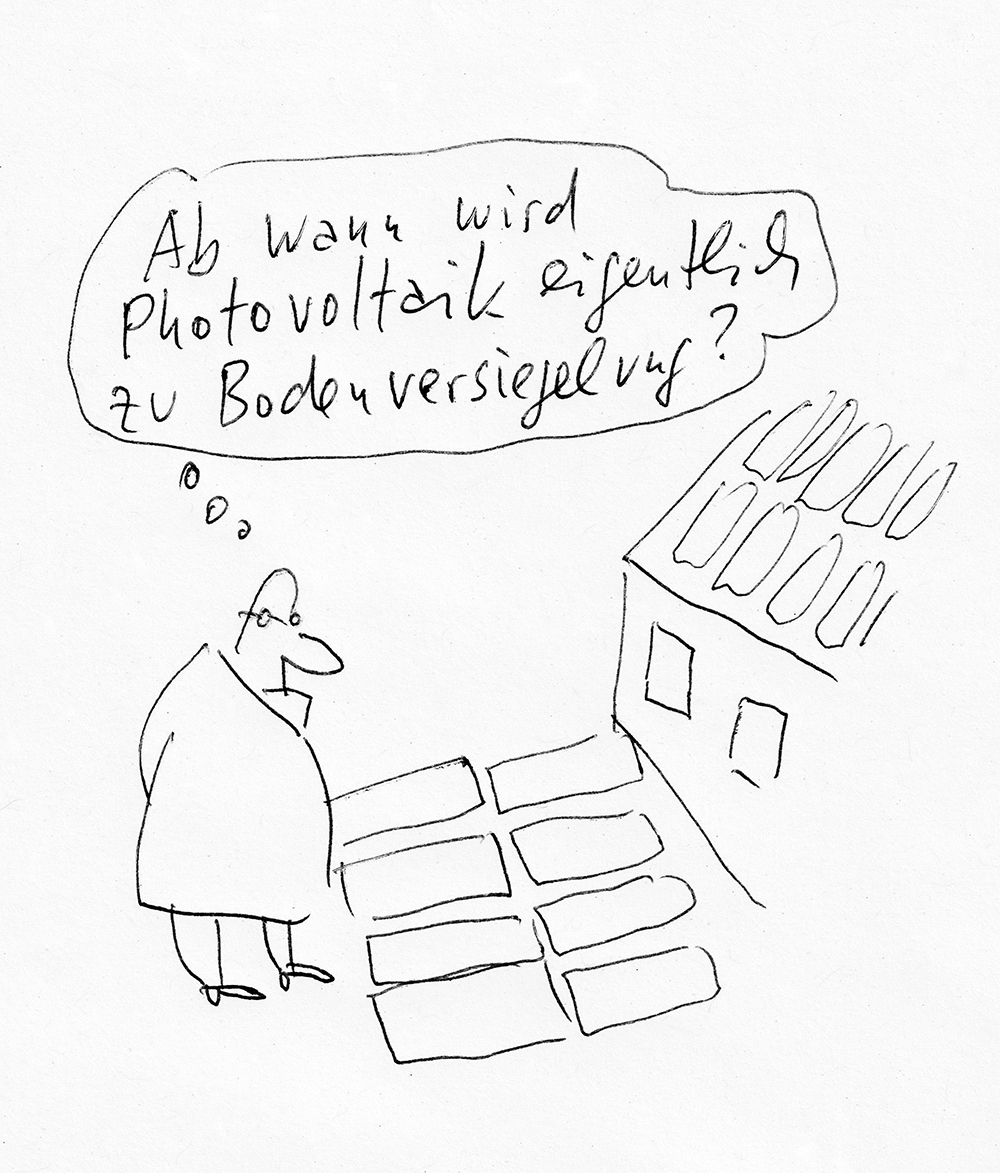 Ab wann wird
Photovoltaik eigentlich
zu Bodenversiegelung?